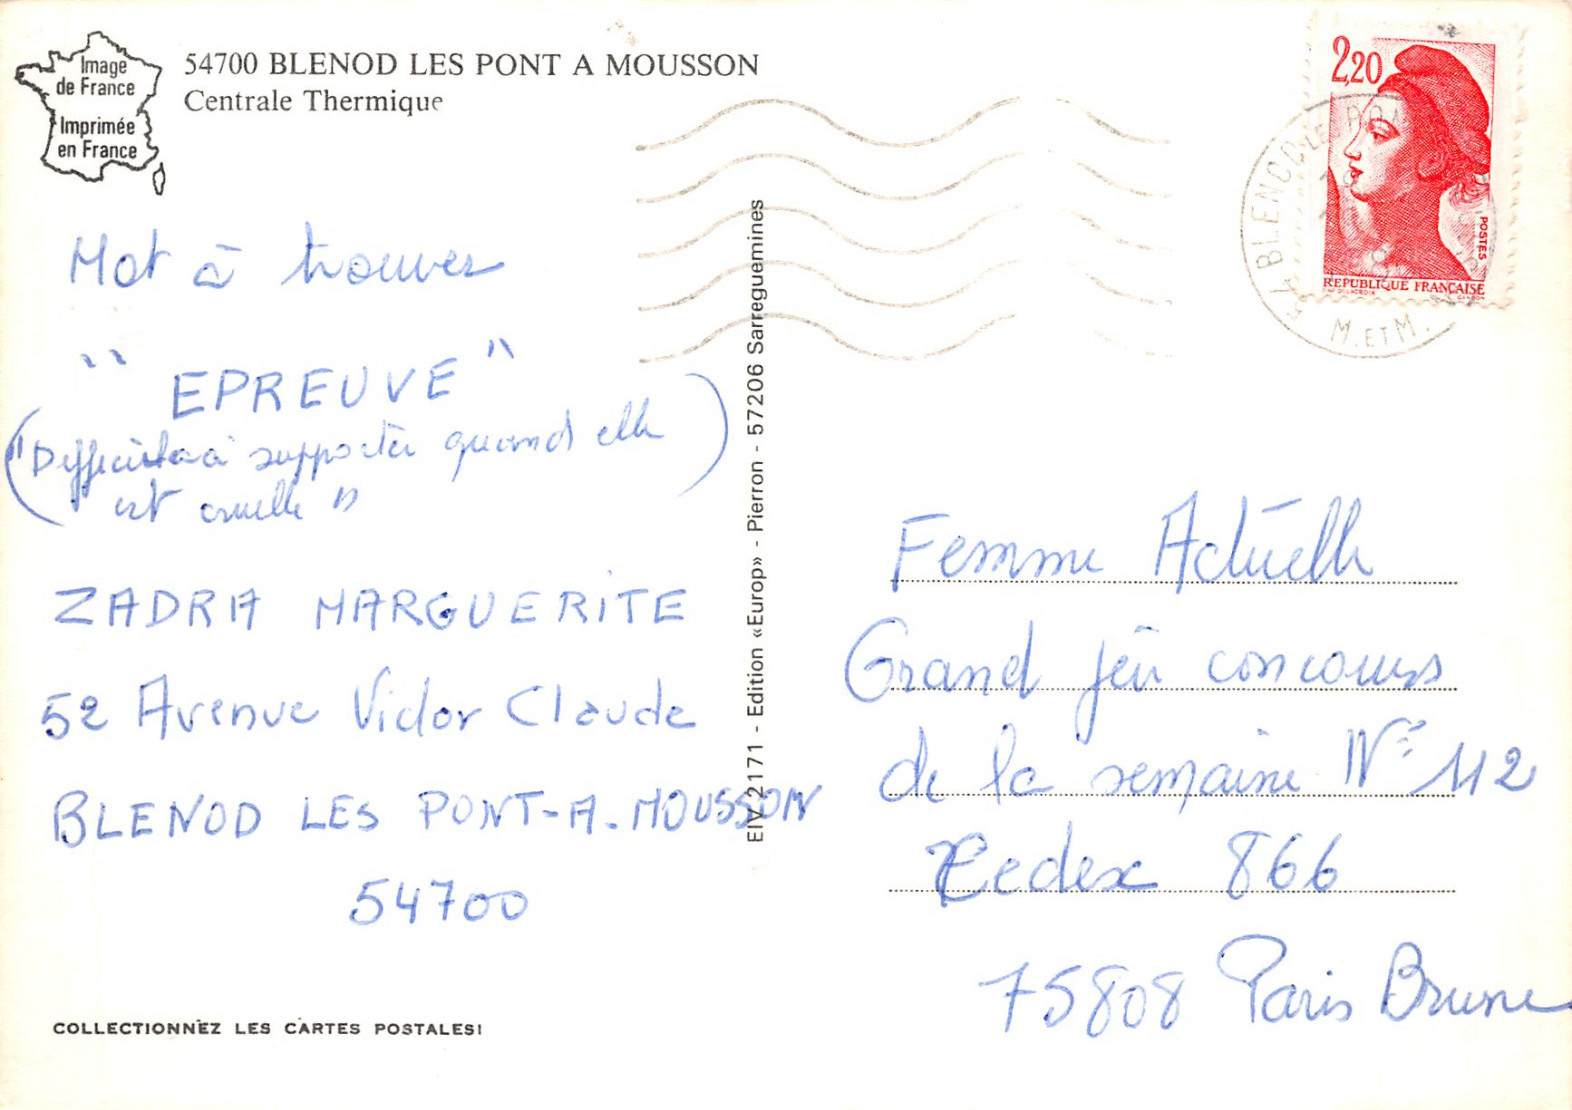 Image
de France
Imprimée
en France
54700 BLENOD LES PONT A MOUSSON
Centrale Thermique
Mot à trouver
"EPREUVE"
("Difficile à supporter quand elle
est cruelle")
ZADRA MARGUERITE
52 Avenue Victor Claude
BLENOD LES PONT-A-MOUSSON
54700
COLLECTIONNEZ LES CARTES POSTALES!
EIV 2171 - Edition «Europ» - Pierron - 57206 Sarreguemines
2,20
POSTES
REPUBLIQUE FRANÇAISE
GANDON
BLENOD LES
M. ET M.
Femme Actuelle
Grand jeu concours
de la semaine N° 112
Cedex 866
75808 Paris Brune